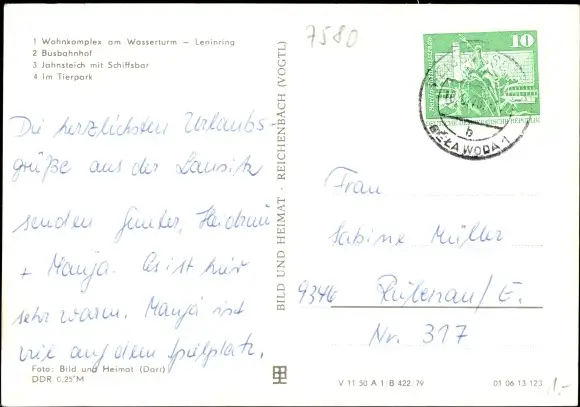 1 Wohnkomplex am Wasserturm – Leninring
2 Busbahnhof
3 Jahnsteich mit Schiffsbar
4 Im Tierpark
7580
Die herzlichsten Urlaubs-
grüße aus der Lausitz
senden Gunter, Heidrun
+ Manja. Es ist hier
sehr warm. Manja ist
viel auf dem Spielplatz.
Foto: Bild und Heimat (Darr)
DDR 0,25 M
BILD UND HEIMAT · REICHENBACH (VOGTL)
10
DEUTSCHE DEMOKRATISCHE REPUBLIK
b
BĚŁA WODA 1
Frau
Sabine Müller
9346 Rübenau/E.
Nr. 317
V 11 50 A 1/B 422/79
01 06 13 123
1,-